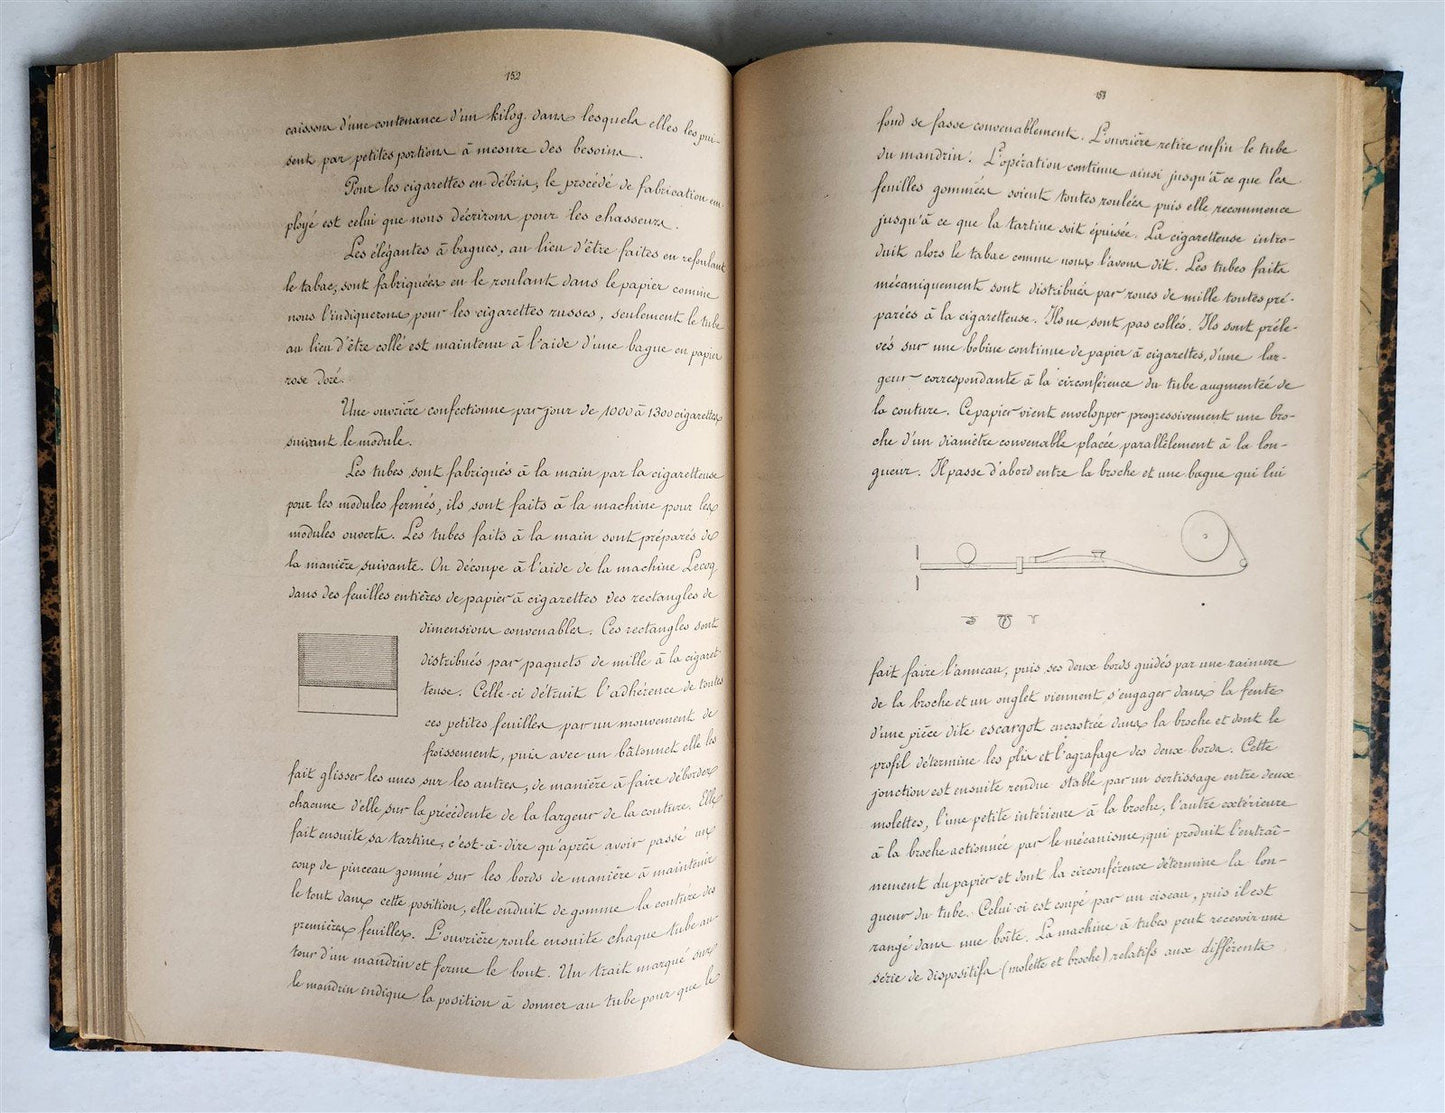 152
caissons d'une contenance d'un kilog. dans lesquels elles les pui-
sent par petites portions à mesure des besoins.
Pour les cigarettes en débris, le procédé de fabrication em
ployé est celui que nous décrirons pour les chasseurs.
Les élégantes à bagues, au lieu d'être faites en refoulant
le tabac, sont fabriquées en le roulant dans le papier comme
nous l'indiquerons pour les cigarettes russes, seulement le tube
au lieu d'être collé est maintenu à l'aide d'une bague en papier
rose doré.
Une ouvrière confectionne par jour de 1000 à 1300 cigarettes
suivant le module.
Les tubes sont fabriqués à la main par la cigaretteuse
pour les modules fermés, ils sont faits à la machine pour les
modules ouverts. Les tubes faits à la main sont préparés de
la manière suivante. On découpe à l'aide de la machine Lecoq
dans des feuilles entières de papier à cigarettes des rectangles de
dimensions convenables. Ces rectangles sont
distribués par paquets de mille à la cigaret-
teuse. Celle-ci détruit l'adhérence de toutes
ces petites feuilles par un mouvement de
froissement, puis avec un bâtonnet elle les
fait glisser les unes sur les autres, de manière à faire déborder
chacune d'elle sur la précédente de la largeur de la couture. Elle
fait ensuite sa tartine, c'est-à-dire qu'après avoir passé un
coup de pinceau gommé sur les bords de manière à maintenir
le tout dans cette position, elle enduit de gomme la couture des
premières feuilles. L'ouvrière roule ensuite chaque tube au-
tour d'un mandrin et ferme le bout. Un trait marqué sur
le mandrin indique la position à donner au tube pour que le
153
fond se fasse convenablement. L'ouvrière retire enfin le tube
du mandrin. L'opération continue ainsi jusqu'à ce que les
feuilles gommées soient toutes roulées puis elle recommence
jusqu'à ce que la tartine soit épuisée. La cigaretteuse intro-
duit alors le tabac comme nous l'avons dit. Les tubes faits
mécaniquement sont distribués par roues de mille toutes pré-
parées à la cigaretteuse. Ils ne sont pas collés. Ils sont préle-
vés sur une bobine continue de papier à cigarettes, d'une lar-
geur correspondante à la circonférence du tube augmentée de
la couture. Ce papier vient envelopper progressivement une bro-
che d'un diamètre convenable placée parallèlement à la lon-
gueur. Il passe d'abord entre la broche et une bague qui lui
fait faire l'anneau, puis ses deux bords guidés par une rainure
de la broche et un onglet viennent s'engager dans la fente
d'une pièce dite escargot encastrée dans la broche et dont le
profil détermine les plis et l'agrafage des deux bords. Cette
jonction est ensuite rendue stable par un sertissage entre deux
molettes, l'une petite intérieure à la broche, l'autre extérieure
à la broche actionnée par le mécanisme, qui produit l'entraî-
nement du papier et dont la circonférence détermine la lon-
gueur du tube. Celui-ci est coupé par un ciseau, puis il est
rangé dans une boîte. La machine à tubes peut recevoir une
série de dispositifs (molette et broche) relatifs aux différents